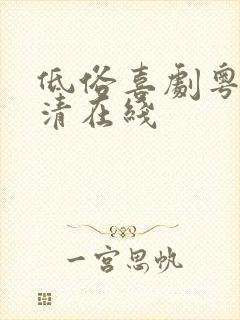 低俗喜劇粵
清在綫
一宮思帆